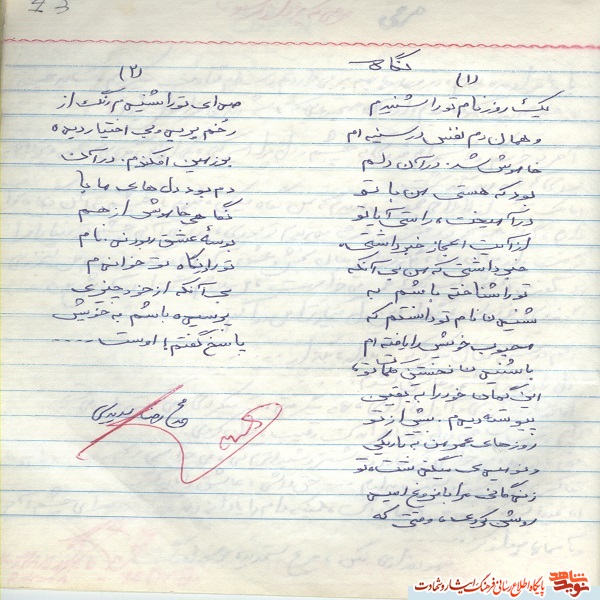 نگاه
(۱)
یک روز نام تو را شنیدم
و همان دم نفس در سینه ام
خاموش شد. در آن دلم
بود که هستی من با تو
در آمیخت، راستی آیا تو
از آن اعجاز خبر داشتی،
خبر داشتی که من بی آنکه
تو را شناخته باشم به
شنیدن نام تو دانستم که
محبوب خویش را یافته ام
با شنیدن نخستین کلمات تو،
این گمان خود را به یقین
پیوسته دیدم. پیش از تو
روزهای عمر من به تاریکی
و نومیدی میگذشت، تو
زندگانی مرا با فروغ امید
روشن کردی، وقتی که
(۲)
صدای تو را شنیدم رنگ از
رخم پرید و بی اختیار دیده
بر زمین افکندم. در آن
دم بود دل های ما با
نگاهی خاموش از هم
بوسه عشق ربودند. نام
تو را در نگاه تو خواندم
بی آنکه از خود چیزی
پرسیده باشم به خویش
پاسخ گفتم! اوست.....
پایگاه اطلاع رسانی فرهنگ ایثار و شهادت
نوید شاهد